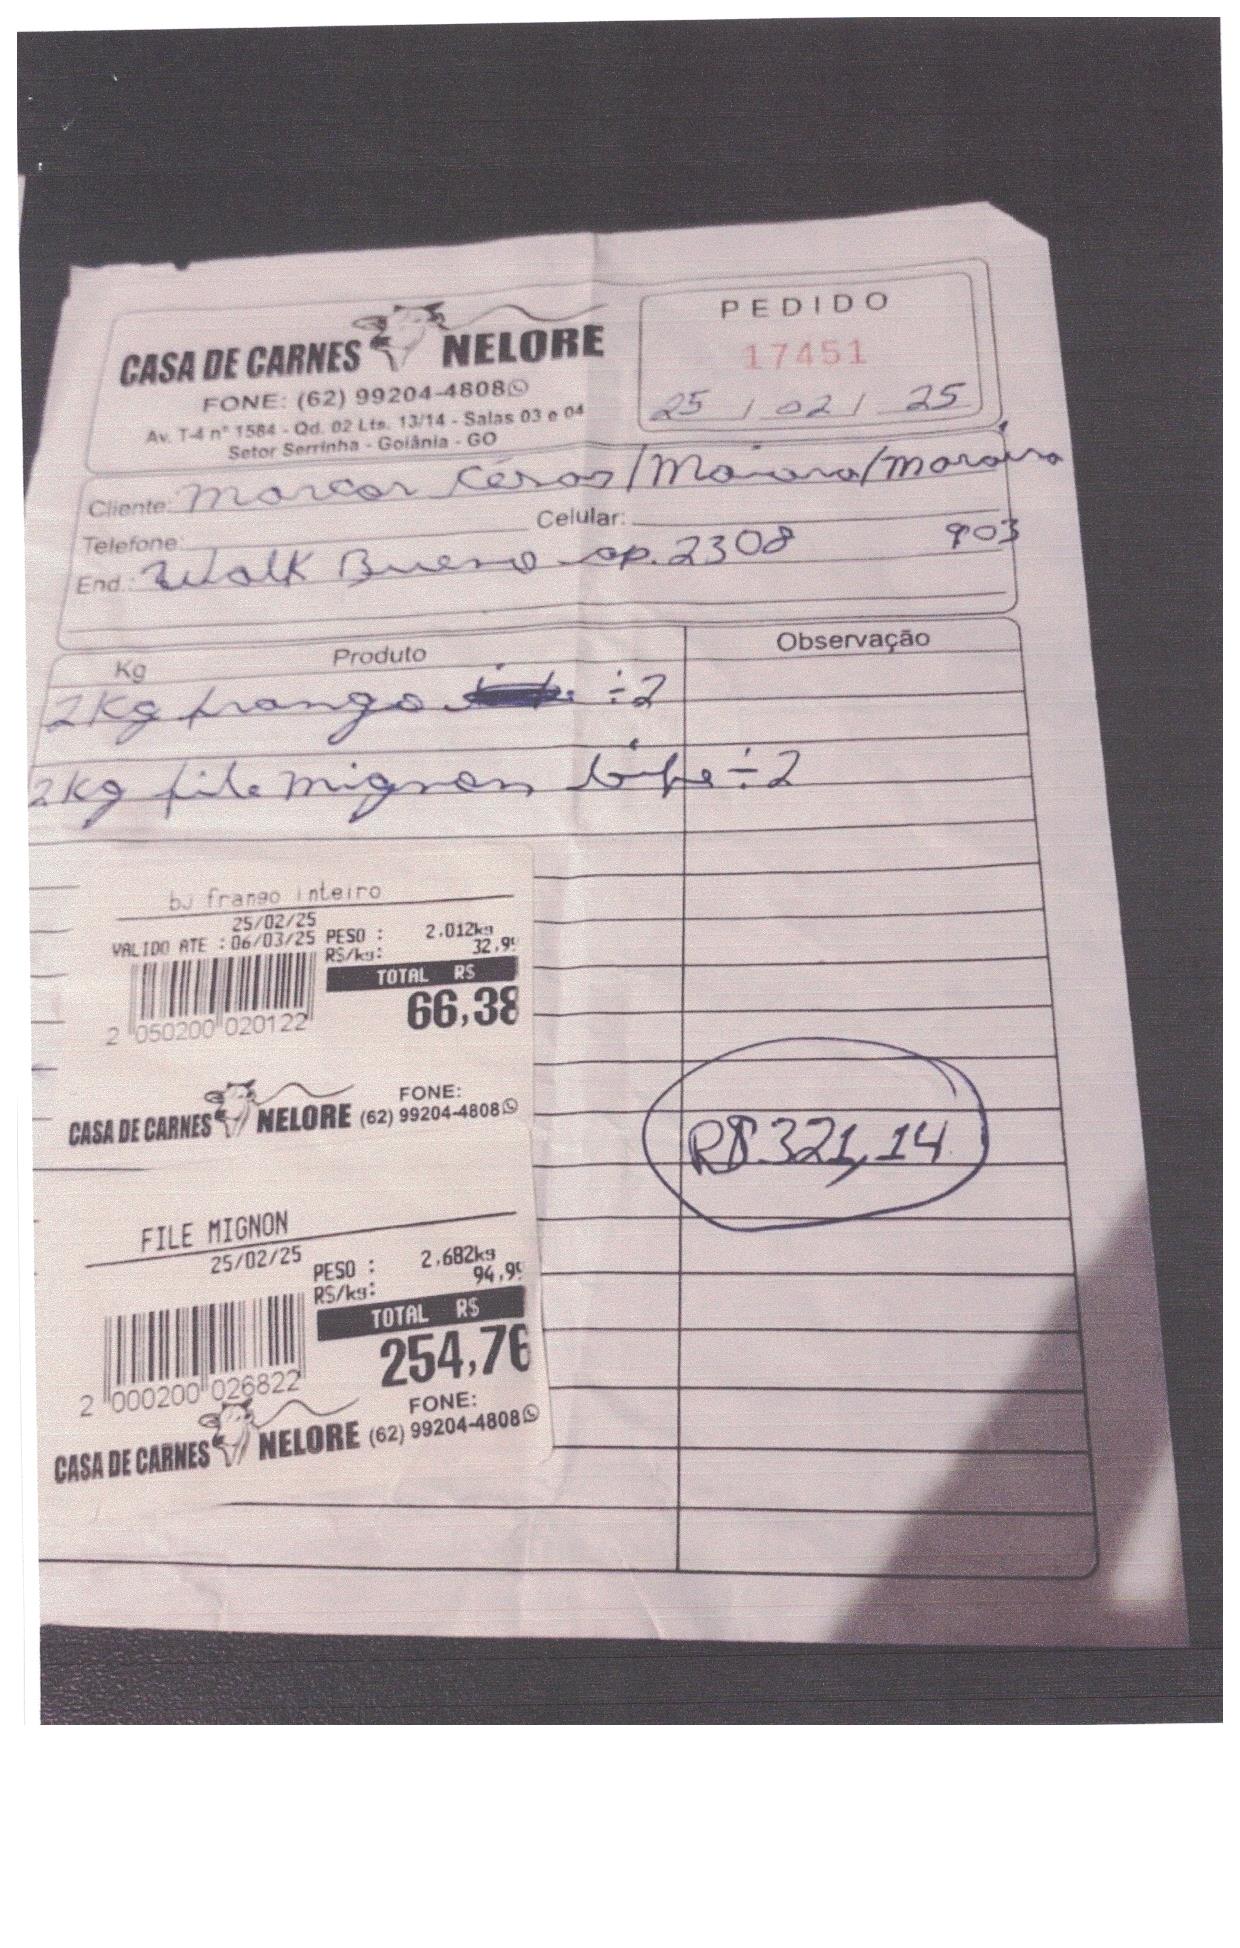 CASA DE CARNES NELORE
FONE: (62) 99204-4808
Av. T-4 nº 1584 - Qd. 02 Lts. 13/14 - Salas 03 e 04
Setor Serrinha - Goiânia - GO
PEDIDO
17451
25 / 02 / 25
Cliente: Marcos /Maiara/Maraisa
Telefone: Celular:
End.: Walk Bueno ap. 2308 903
Kg Produto Observação
2Kg frango ÷2
2kg file mignon bife ÷2
bj frango inteiro
25/02/25
VALIDO ATE : 06/03/25 PESO : 2.012kg
R$/kg: 32,99
TOTAL R$
66,38
2 050200 020122
FONE:
CASA DE CARNES NELORE (62) 99204-4808
FILE MIGNON
25/02/25
PESO : 2,682kg
R$/kg: 94,99
TOTAL R$
254,76
2 000200 026822
FONE:
CASA DE CARNES NELORE (62) 99204-4808
R$ 321,14